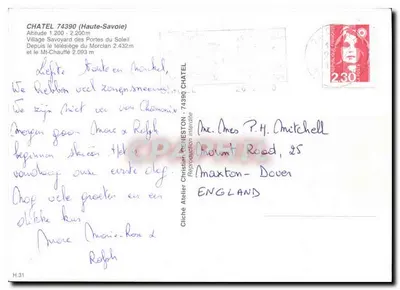 CHATEL 74390 (Haute-Savoie)
Altitude 1.200 - 2.200m
Village Savoyard des Portes du Soleil
Depuis le télésiège du Morclan 2.432m
et le Mt-Chauffé 2.093 m
Liefste tante en nonkel,
We hebben veel
We zijn niet ver van Chamonix
Morgen gaan Marc & Ralph
beginnen skiën. Het
vandaag onze eerste dag
groeten en een
dikke kus
Marc Marie-Rose &
Ralph
H 31
Cliché Atelier Christian - 74390 CHATEL
Reproduction interdite
2.30
Mr. Mrs P.H. Mitchell
Mount Road, 25
Maxton - Dover
ENGLAND